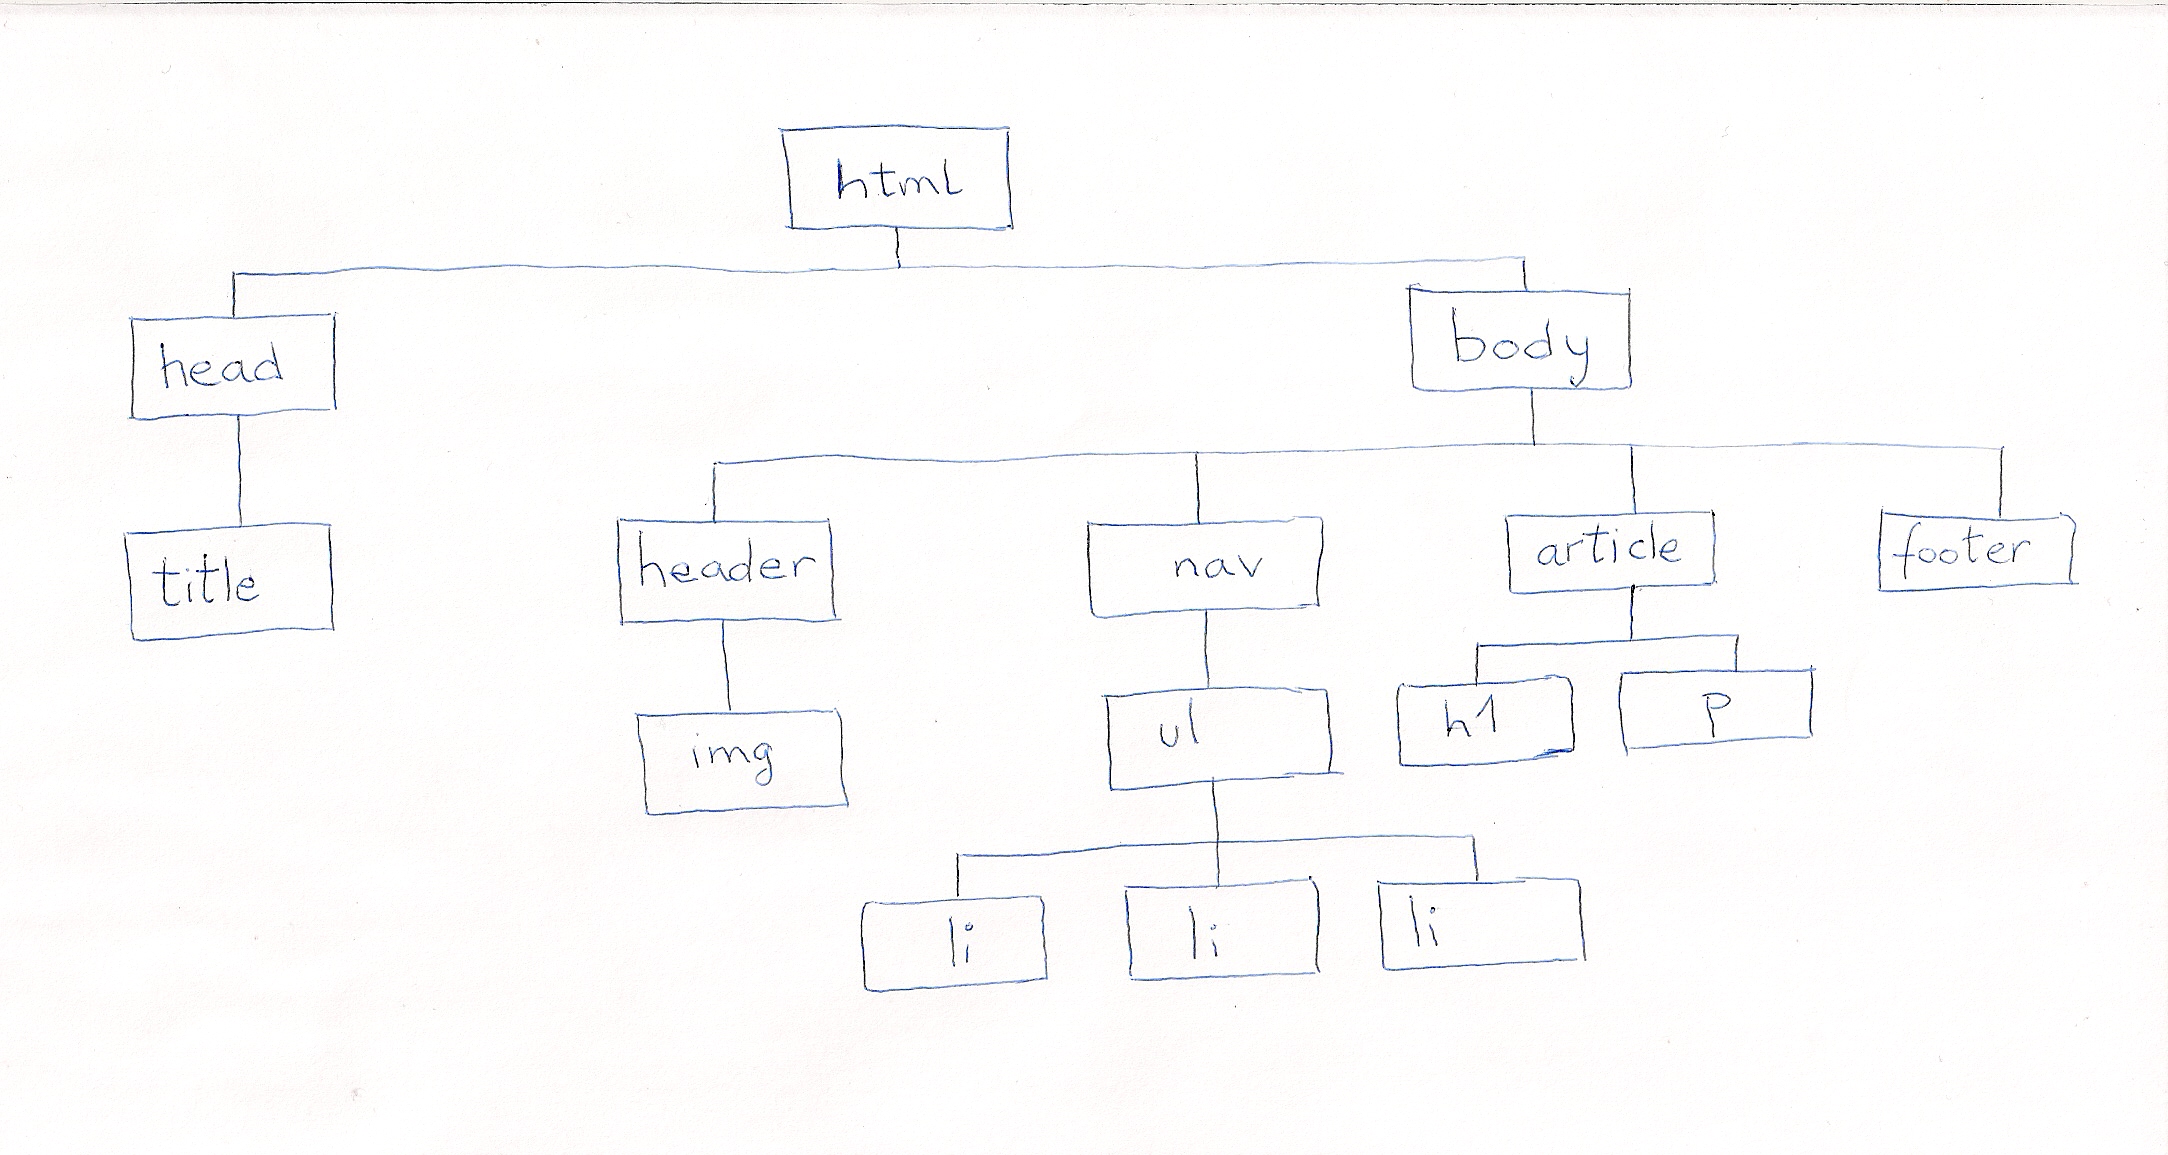 html
head
body
title
header
nav
article
footer
img
ul
h1
p
li
li
li